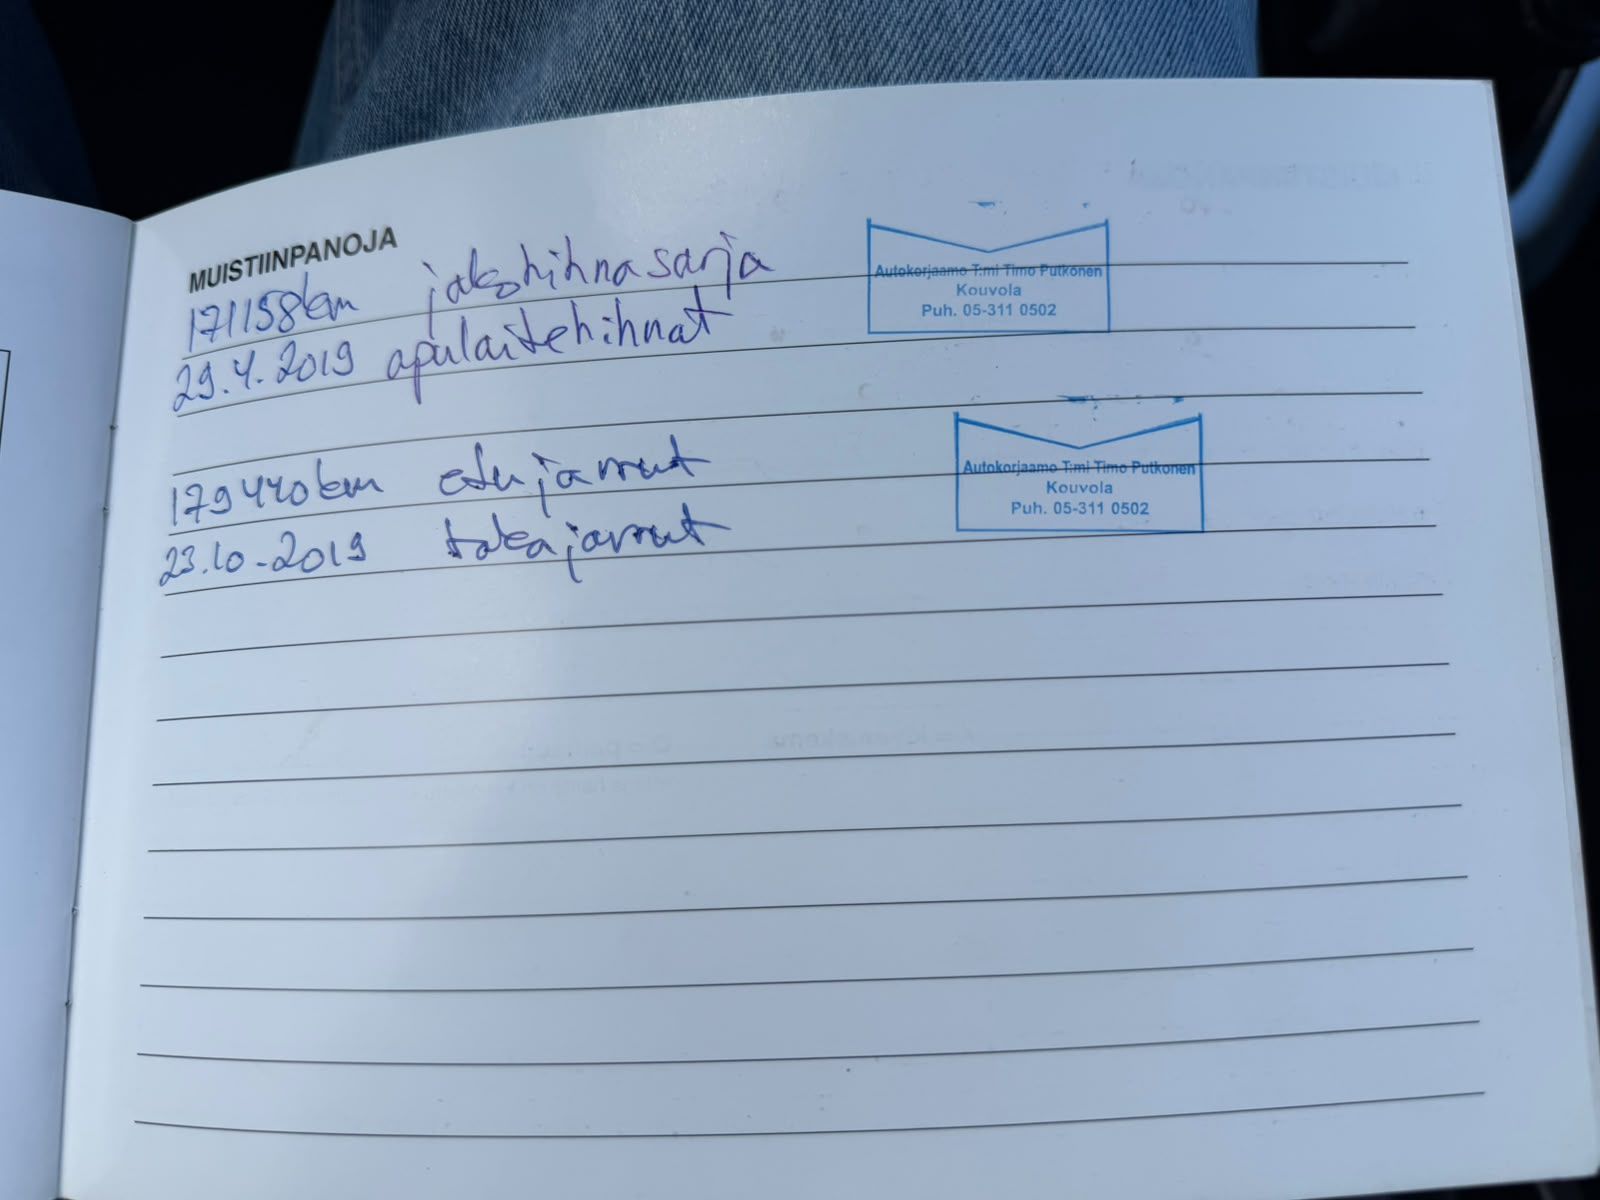 MUISTIINPANOJA
171158km jakohihnasarja
29.4.2019 apulaitehihnat
Autokorjaamo T:mi Timo Putkonen
Kouvola
Puh. 05-311 0502
179440km etujarrut
23.10.2019 takajarrut
Autokorjaamo T:mi Timo Putkonen
Kouvola
Puh. 05-311 0502